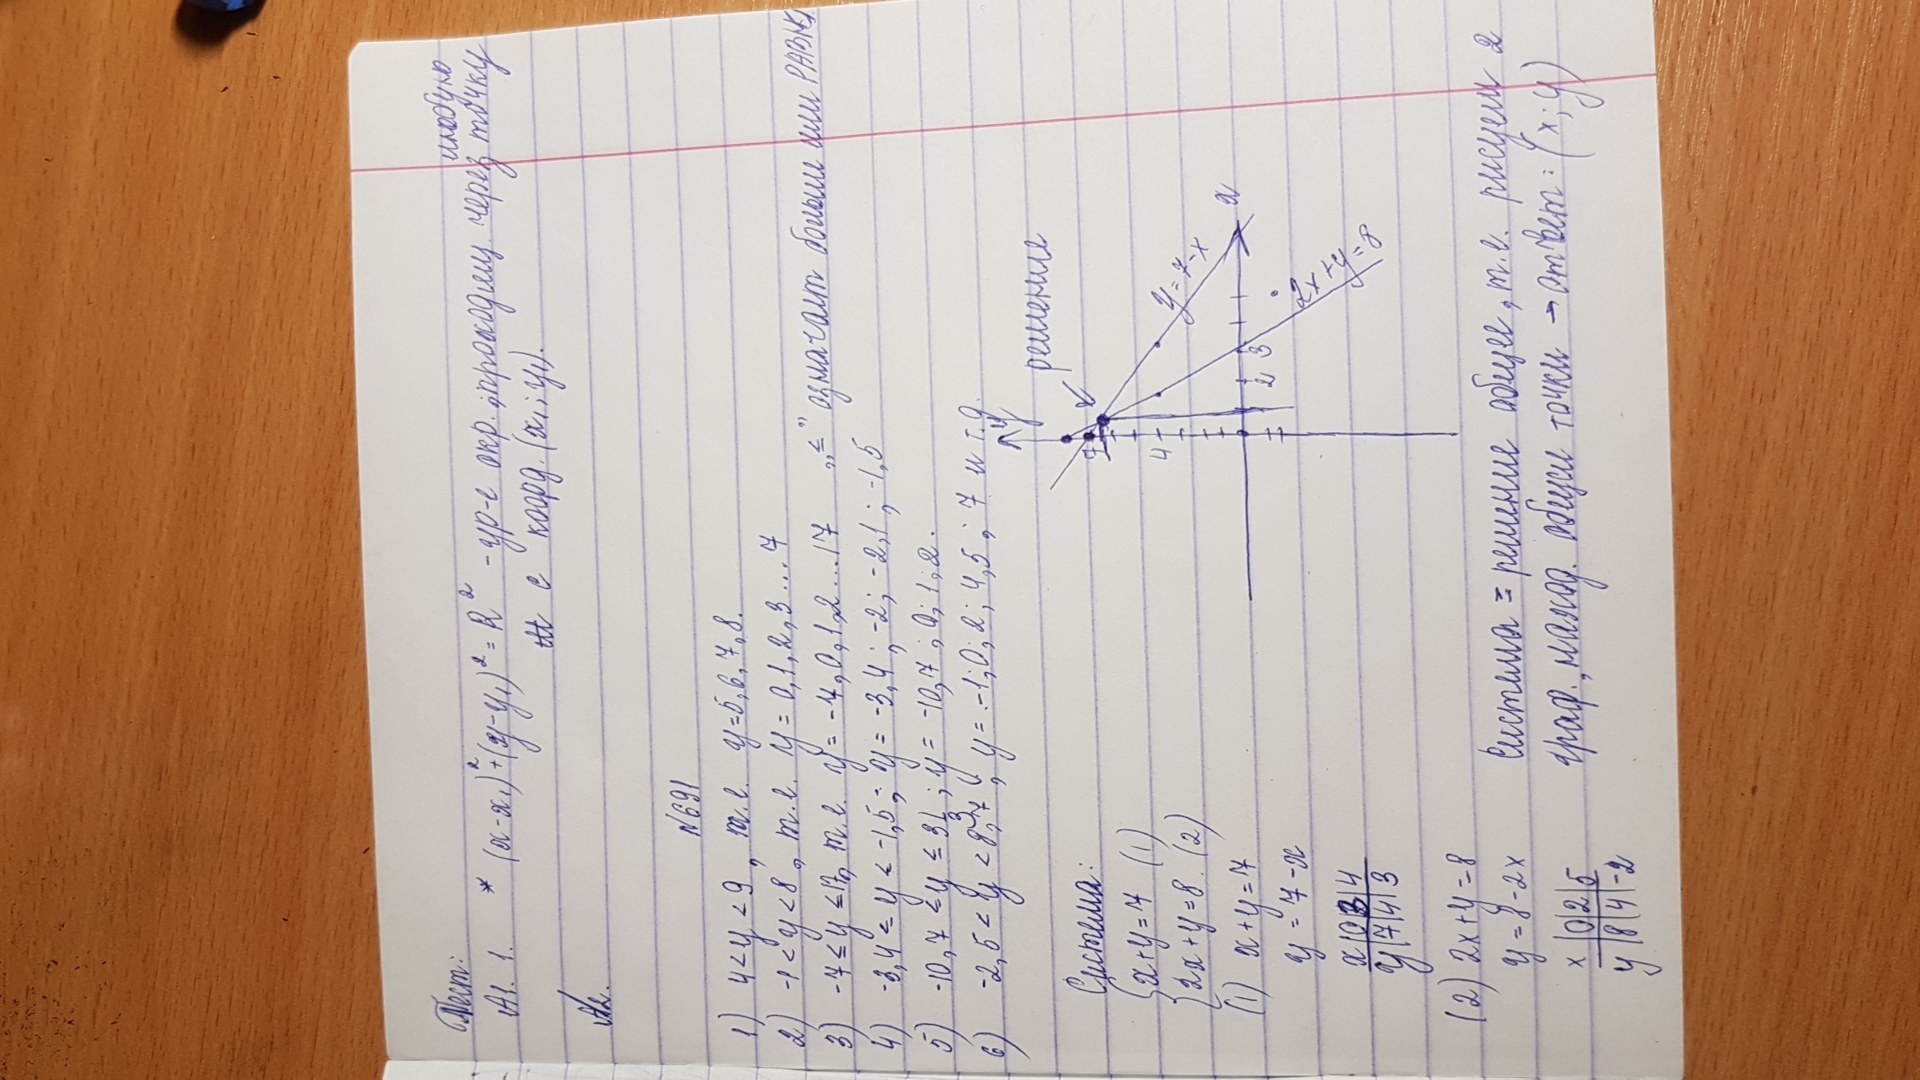 Тест:
А1. 1. * (x-x₁)²+(y-y₁)²=R² - ур-е окр., проходящ через точку
с коорд. (x₁; y₁).
А2.
№691
1) 4<y<9, т.е. y=5,6,7,8.
2) -1<y<8, т.е. y=0,1,2,3...7
3) -7≤y≤17, т.е. y=-7,0,1,2...17 „≤" означает больше или РАВНО
4) -3,4≤y<-1,5; y=-3,4; -2; -2,1; -1,5
5) -10,7≤y≤3; y=-10,7; 0; 1; 2.
6) -2,5<y<8, y=-1; 0; 2; 4,5; 7 и т.д.
Система:
{x+y=7 (1)
{2x+y=8. (2)
(1) x+y=7
y=7-x
x|0|3|4
y|7|4|3
(2) 2x+y=8
y=8-2x
x|0|2|5
y|8|4|-2
y
решение
7
4
2
3
x
y=7-x
2x+y=8
Система = решение общее, т.е. рисуем 2
граф., наход. общие точки → ответ: (x; y)